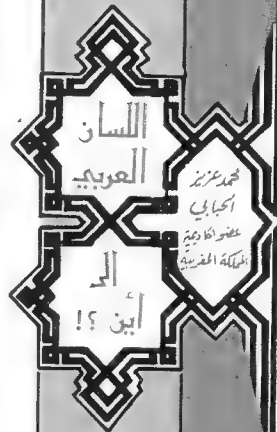 اللسان
العربي
الى
أين ؟!
محمد عزيز
الحبابي
عضو اكاديمية
المملكة المغربية